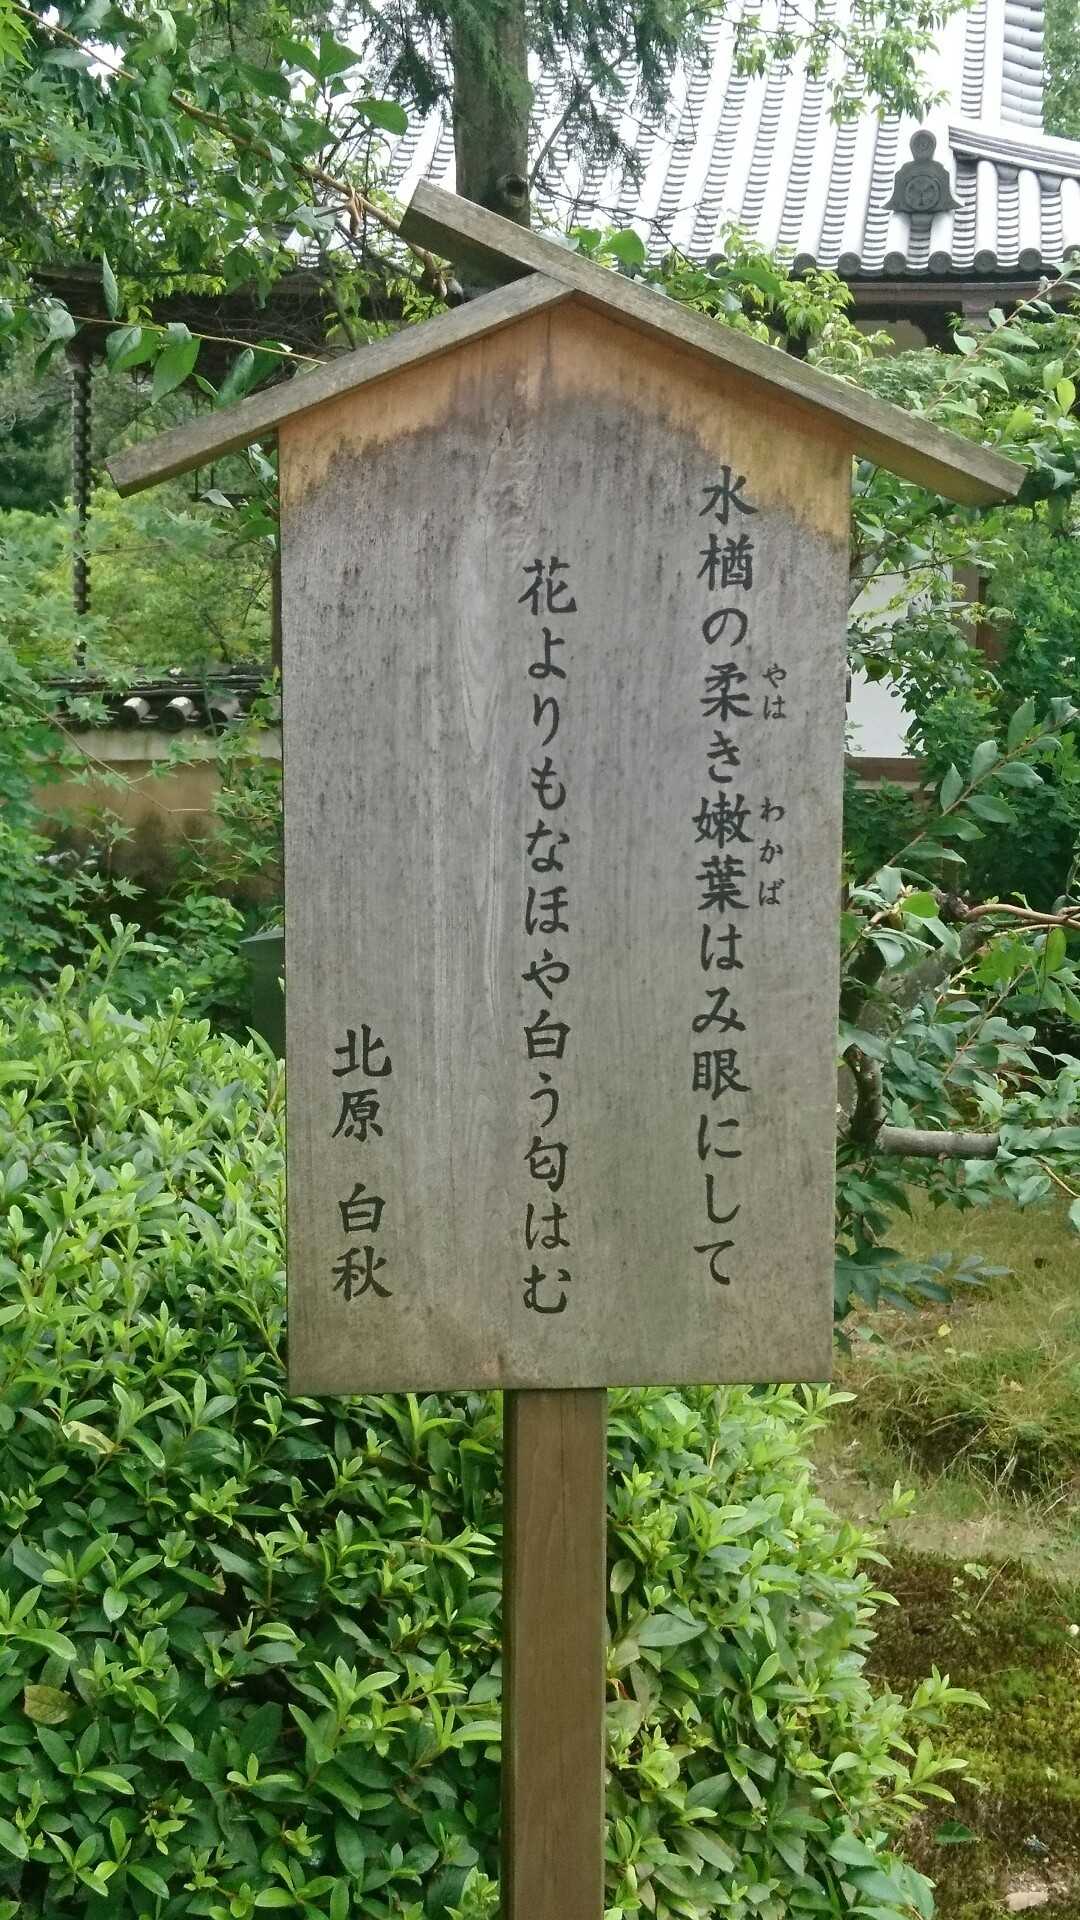 水楢の柔き嫩葉はみ眼にして
やは わかば
花よりもなほや白う匂はむ
北原 白秋